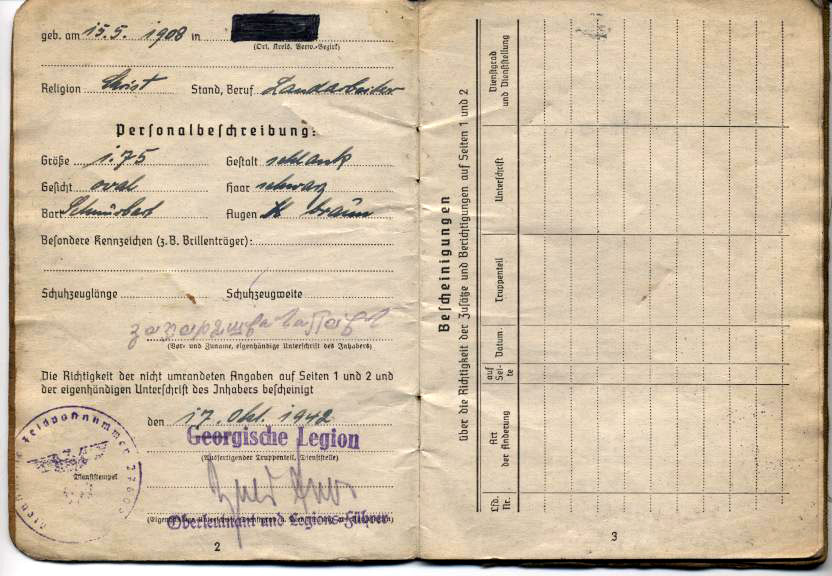 geb. am 15.5. 1908 in
(Ort, Kreis, Verw.-Bezirk)
Religion Christ Stand, Beruf Landarbeiter
Personalbeschreibung:
Größe 1.75 Gestalt schlank
Gesicht oval Haar schwarz
Bart Schnurbart Augen braun
Besondere Kennzeichen (z. B. Brillenträger):
Schuhzeuglänge Schuhzeugweite
(Vor- und Zuname, eigenhändige Unterschrift des Inhabers)
Die Richtigkeit der nicht umrandeten Angaben auf Seiten 1 und 2 und
der eigenhändigen Unterschrift des Inhabers bescheinigt
den 17. Okt. 1942
Feldpostnummer
Georgische Legion
(Ausfertigender Truppenteil, Dienststelle)
Dienststempel
Oberleutnant und Legions-Führer
2
Bescheinigungen
über die Richtigkeit der Zusätze und Berichtigungen auf Seiten 1 und 2
Lfd. Nr.
Art der Änderung
auf Seite
Datum
Truppenteil
Unterschrift
Dienstgrad und Dienststellung
3